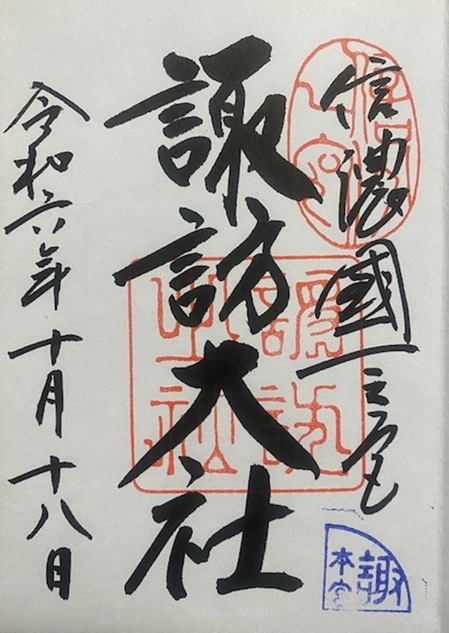 信濃國一之宮
諏訪大社
令和六年十月十八日
諏訪大社
諏
本宮